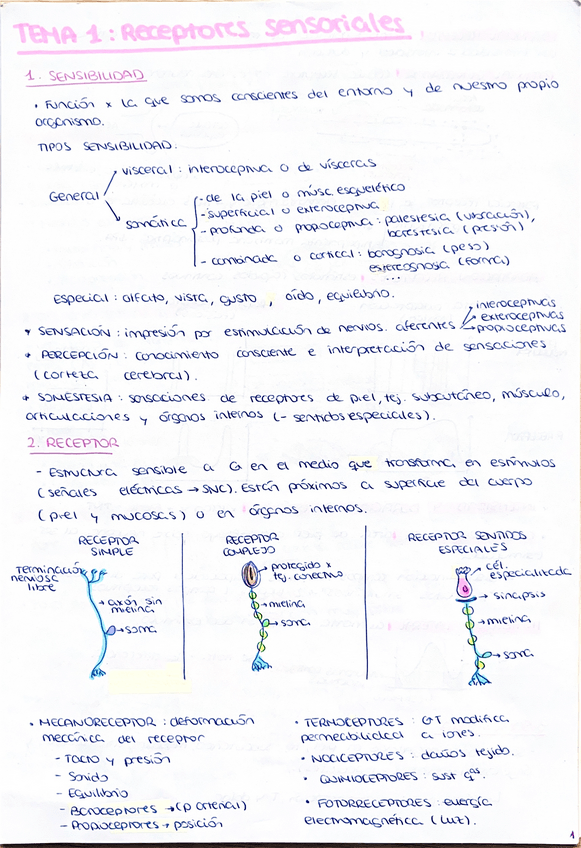 TEMA 1: Receptores sensoriales
1. SENSIBILIDAD
• Función x la que somos conscientes del entorno y de nuestro propio
organismo.
TIPOS SENSIBILIDAD.
General
visceral: interoceptiva o de vísceras
somática
- de la piel o músc. esquelético
- superficial o exteroceptiva
- profunda o propioceptiva: palestesia (vibración),
barestesia (presión)
- combinada o cortical: barognosia (peso)
estereognosia (forma)
...
Especial: olfato, vista, gusto, oído, equilibrio.
* SENSACIÓN: impresión por estimulación de nervios aferentes
interoceptivas
exteroceptivas
propioceptivas
* PERCEPCIÓN: conocimiento consciente e interpretación de sensaciones
(corteza cerebral).
* SOMESTESIA: sensaciones de receptores de piel, tej. subcutáneo, músculo,
articulaciones y órganos internos (- sentidos especiales).
2. RECEPTOR
- Estructura sensible a en el medio que transforma en estímulos
(señales eléctricas → SNC). Están próximos a superficie del cuerpo
(piel y mucosas) o en órganos internos.
RECEPTOR
SIMPLE
Terminación
nerviosa
libre
axón sin
mielina
soma
RECEPTOR
COMPLEJO
protegido x
tej. conectivo
mielina
soma
RECEPTOR SENTIDOS
ESPECIALES
cél.
especializada
sinapsis
mielina
soma
• MECANORECEPTOR: deformación
mecánica del receptor
- Tacto y presión
- Sonido
- Equilibrio
- Baroceptores → (p arterial)
- Propioceptores → posición
• TERMOCEPTORES: modifica
permeabilidad a iones.
• NOCICEPTORES: daños tejido.
• QUIMIOCEPTORES: sust qas.
• FOTORRECEPTORES: energía
electromagnética (luz).
1